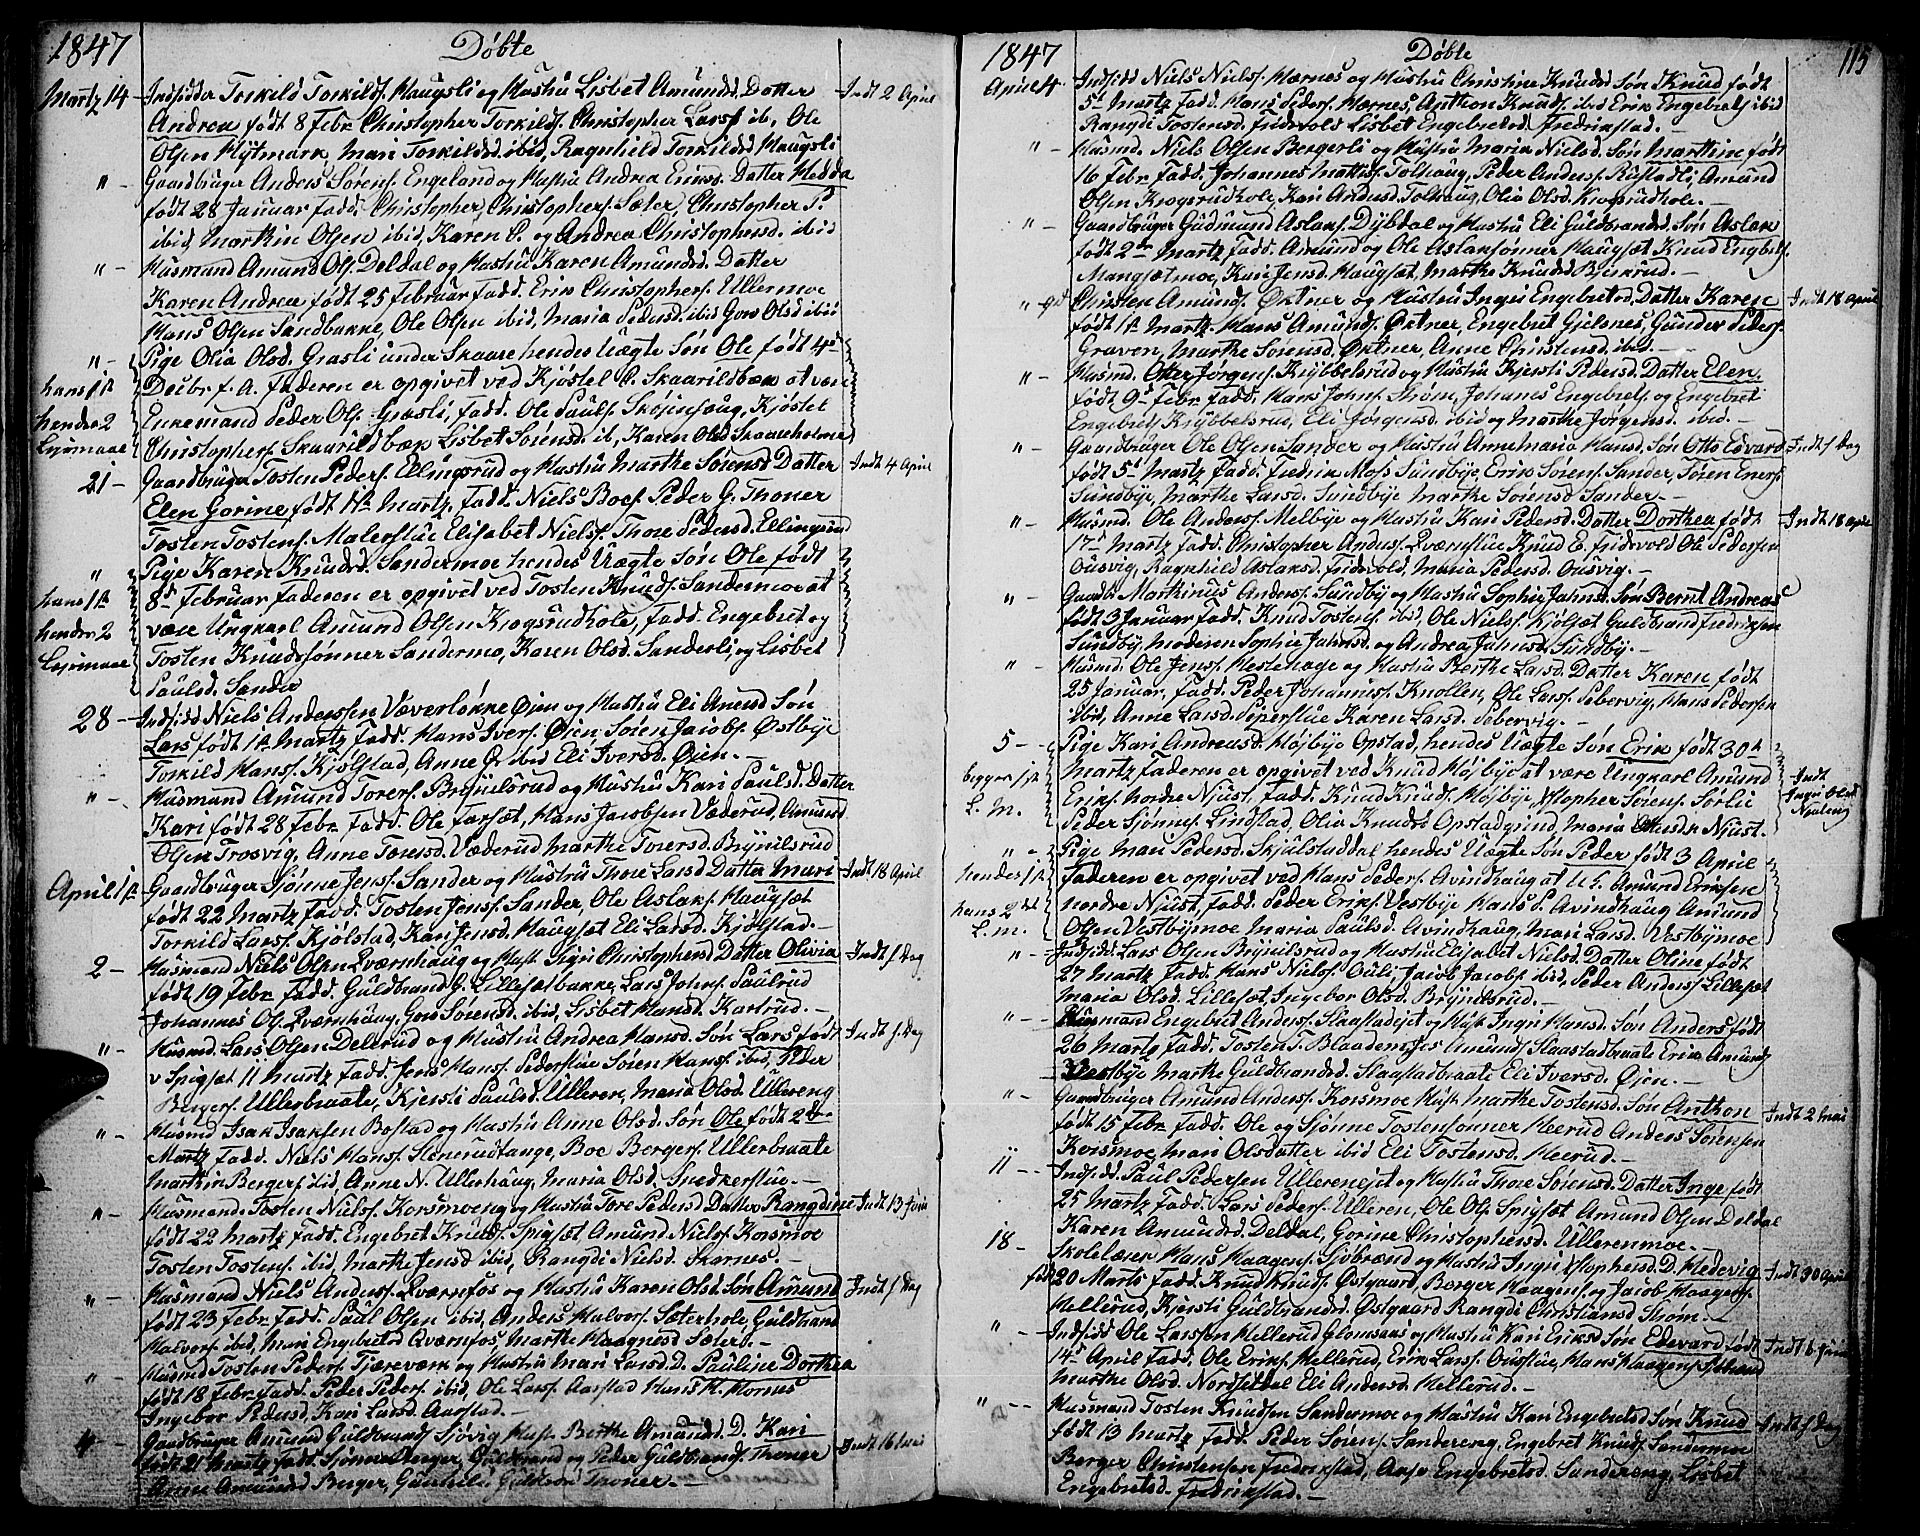 1847 Døbte
Martz 14 Indsidder Torkild Torkilds. Haugsli og Hustru Lisbet Amundsd. Datter Indt 2 April
Andrea født 8 Febr Christopher Torkilds. Christopher Larss ib, Ole
Olsen Flytmark, Mari Torkildsd ibid, Ragnhild Torkildsd Haugsli
" - Gaardbruger Anders Sørens. Engeland og Hustru Andrea Eriksd. Datter Hedda
født 28 Januar Fadd, Christopher, Christophers. Sæter, Christopher P.
ibid, Marthin Olsen ibid, Karen C. og Andrea Christophersd. ibid
" - Husmand Amund Ols. Deldal og Hustru Karen Amundsd. Datter
Karen Andrea født 25 Februar Fadd. Erik Christophers. Ullermoe
Hans Olsen Sandbakke, Ole Olsen ibid, Maria Pedersd. ibid Goro Olsd ibid
" - Pige Olia Olsd. Grasli under Skaare hendes Uægte Søn Ole født 4de
hans 1st Decbr f. A. Faderen er opgivet ved Kjøstel C. Skaarildbæk at være
hendes 2 Enkemand Peder Ols. Grasli, Fadd. Ole Pauls.
Lejrmaal Christophers. Skaarildbæk Lisbet Sørensd. ib, Karen Olsd Skaareholme
21 - Gaardbruger Tosten Peders. Ellingsrud og Hustru Marthe Sørensd Datter Indt 4 April
Elen Gorine født 1st Martz, Fadd. Niels Boes. Peder G. Thoner
Tosten Tostens. Malerstue Elisabet Nielss. Thore Pedersd. Ellingsrud
" Pige Karen Knudsd. Sandermoe hendes Uægte Søn Ole født
hans 1st 8d Februar Faderen er opgivet ved Tosten Knuds. Sandermoe at
hendes 2 være Ungkarl Amund Olsen Krogsrudhole, Fadd. Engebret og
Lejrmaal Tosten Knudssønner Sandermo, Karen Olsd. Sanderli, og Lisbet
Paulsd. Sander
28 - Indsidd Niels Anderssen Væverløkke Øjen og Hustru Eli Arensd Søn
Lars født 1st Martz Fadd. Hans Ivers. Øjen, Søren Jacobs. Østbye
Torkild Hans. Kjølstad, Anne G. ibid Eli Iversd. Øjen. -
" - Husmand Amund Torers. Brynilsrud og Hustru Kari Paulsd. Datter
Kari født 28 Febr Fadd. Ole Farsæt, Hans Jacobsen Væderud, Amund
Olsen Trosvig, Anne Torersd. Væderud Marthe Torersd. Brynilsrud
April 1st Gaardbruger Sjønne Jens. Sander og Hustru Thore Larsd Datter Mari Indt 18 April
født 22 Martz Fadd. Tosten Jens. Sander, Ole Aslaks. Haugsæt
Torkild Lars. Kjølstad, Kari Jensd. Haugsæt Eli Larsd. Kjølstad. -
2 - Husmand Niels Olsen Qværnhaug og Hust. Sigri Christophersd Datter Olivia Indt s. Dag
født 19 Febr Fadd. Guldbrand G. Lillesætbakke, Lars Johns. Paulrud
Johannes Ol. Qværnhaug, Goro Sørensd. ibid, Lisbet Hansd. Kartrud. -
" - Husmd. Lars Olsen Deltrud og Hustru Andrea Hansd. Søn Lars født Indt s. Dag
v Spigsæt 11 Martz Fadd. Jens Hans. Pederstue Søren Hans. ibid, Peder
Bergers. Ullerbraate, Kjersti Paulsd. Ulleren, Maria Olsd. Ullereng
" - Husmd Isak Isaksen Bostad og Hustru Anne Olsd. Søn Ole født 2de
Martz Fadd. Niels Hans. Stenerudtange, Boe Bergers. Ullerbraate
Marthin Bergers ibid, Anne N. Ullerhaug, Maria Olsd. Snedkerstue. -
" - Husmand. Tosten Niels. Korsmoeng og Hustru Tore Pedersd Datter Rangdine Indt 13 Juni
født 22 Martz Fadd. Engebret Knuds. Spigsæt Amund Niels. Korsmoe
Tosten Tostens. ibid, Marthe Jensd ibid, Rangdi Nielsd. Skarnes. -
" - Husmand Niels Anders. Qværnfos og Hustru Karen Olsd. Søn Amund Indt s. Dag
født 23 Febr Fadd. Paul Olsen ibid, Anders Halvors. Sæterhole, Guldbrand
Halvors. ibid, Mari Engebretsd Qværnfos, Marthe Haagensd Sæter. -
" - Husmd Tosten Peders. Tjæreværk og Hustru Mari Larsd. D. Pauline Dorthea
født 18 Febr Fadd. Peder Peders. ibid, Ole Lars. Aarstad Hans H. Hornes
Ingebor Pedersd, Kari Larsd. Aarstad. -
4 - Gaardbruger Amund Guldbrands. Sjøvig Hust. Berthe Amundsd. D. Kari
født 21 Martz Fadd. Sjønne Berger, Guldbrand og Peder Guldbrands. Thoner Indt 16 Mai
Anne Amundsd Berger, Gunhild Guldbrsd Thoner. -
1847 Døbte 115
April 4. Indsidd Niels Niels. Hærnes og Hustru Christine Knudsd Søn Knud født
5d Martz Fadd. Hans Peders. Hærnes, Anthon Knuds. ibid Erik Engebrets ibid
Rangdi Tostensd. Fridvold Lisbet Engebretsd Fredrikstad. -
" - Husmd. Niels Olsen Bergerli og Hustru Maria Nielsd. Søn Marthin født
16 Febr Fadd. Johannes Mathis. Tolhaug, Peder Anders. Rustadli, Amund
Olsen Krogsrudhole, Kari Andersd. Tolhaug, Olia Olsd. Krogsrudhole. -
" - Gaardbruger Gudmund Aslaks. Dybdal og Hustru Eli Guldbrandsd. Søn Aslak
født 2de Martz Fadd. Amund og Ole Aslaksønner Haugsæt Knud Engbrts.
Mangsætmoe, Kari Jensd. Haugsæt, Marthe Knudsd Bjerkrud. -
" gd Christen Amunds. Øktner og Hustru Ingri Engebretsd, Datter Karen Indt 18 April
født 1st Martz. Hans Amunds. Øktner, Engebret Gjelsnes, Gunder Peders.
Graven, Marthe Sørensd. Øktner, Anne Christensd. ibid. -
" - Husmd. Otter Jørgens. Krybbelsrud og Hustru Kjersti Pedersd. Datter Elen
født 9d Febr Fadd. Hans Johns. Strøm, Johanes Engebrets. og Engebret
Engebrets. Krybbelsrud, Eli Jørgensd. ibid og Marthe Jørgensd. ibid. -
" - Gaardbruger Ole Olsen Sander og Hustru Annemaria Hansd. Søn Otto Edvard Indt s Dag
født 5d Martz Fadd. Fredrik Moss Sundbye, Erik Sørens. Sander, Søren Eners.
Sundbye, Marthe Larsd. Sundbye Marthe Sørensd Sander. -
" - Husmd. Ole Anders. Melbye og Hustru Kari Pedersd. Datter Dorthea født Indt 18 April
17d Martz Fadd. Christopher Anders. Qværnstue Knud E. Fridvold Ole Pedersen
Ousvig, Ragnhild Aslaksd. Fridvold, Maria Pedersd. Ousvig. -
" - Gaardb. Marthinus Anders. Sundby og Hustru Sophie Jahnsd. Søn Bernt Andreas
født 3 Januar Fadd. Knud Tostens. ibid, Ole Niels. Kjølsæt Guldbrand Fredriksen
Sundby, moderen Sophie Jahnsd. og Andrea Jahnsd. Sundby. -
" - Husmd. Ole Jens. Hestehage og Hustru Berthe Larsd. Datter Karen født
25 Januar, Fadd. Peder Johannis. Knollen, Ole Lars. Sebervig, Hans Pedersen
ibid, Anne Larsd. Peperstue Karen Larsd. Sebervig. -
5 - Pige Kari Andreasd. Højbye Opstad, hendes Uægte Søn Erik født 30te
begges 1st Martz Faderen er opgivet ved Knud Højbye at være Ungkarl Amund Indt
L. M. Eriks. Nordre Njust, Fadd. Knud Knuds. Højbye, Xstopher Sørens. Sørlie Ingri Olsd
Peder Sjønnes. Lindstad, Olia Knudsd Opstadgrind, Maria Ottersdr Njust.
" - Pige Mari Pedersd. Skjulstaddal hendes Uægte Søn Peder født 3 April
hendes 1st Faderen er opgivet ved Hans Peders. Avindhaug at U.G. Amund Eriksen
hans 2det Nordre Njust, Fadd. Peder Eriks. Vestbye Hans P. Avindhaug Amund
L. M. Olsen Vestbymoe Maria Paulsd. Avindhaug, Mari Larsd. Vestbymoe
" - Indsidd. Lars Olsen Brynilsrud og Hustru Elisabet Nielsd. Datter Oline født
27 Martz Fadd. Hans Niels. Ouli, Jacob Jacobs. ibid, Peder Anders. Lillesæt
Maria Olsd. Lillesæt, Ingebor Olsd. Brynilsrud. -
" - Husmand Engebret Anders. Slaastadejet og Hust. Ingri Hansd. Søn Anders født
26 Martz Fadd. Tosten T. Blaadenes Amund Slaastadbraate Erik Amunds
Vestbye Marthe Guldbrandsd. Slaastadbraate Eli Iversd. Øjen. -
" - Gaardbruger Amund Anders. Korsmoe Hust. Marthe Tostensd. Søn Anthon Indt 2 Mai
født 15 Febr Fadd. Ole og Sjønne Tostensønner Heerud Anders Sørensen
Korsmoe, Mari Olsdatter ibid Eli Tostensd. Heerud. -
11 - Indsidd. Paul Pedersen Ullerenejet og Hustru Thore Sørensd. Datter Inge født
25 Martz Fadd. Lars Peders. Ulleren, Ole Ols. Spigsæt Amund Olsen Deldal
Karen Amundsd. Deldal, Gorine Christophersd. Ullerenmoe. -
18 - Skolelærer Hans Haagens. Sjøbrænd og Hustru Ingri Xstophersd. D. Hedevig Indt 30 April
fød 20 Marts Fadd. Knud Knuds. Østgaard, Berger Haagens. og Jacob Haagens.
Hellerud, Kjersti Guldbrandsd. Østgaard Rangdi Christiansd Strøm. -
" - Indsidd Ole Larssen Hellerud Glomsaas og Hustru Kari Eriksd Søn Edevard født Indt 6 Juni
14d April Fadd, Ole Eriks. Hellerud, Erik Lars. Oustue, Hans Haagens. Sjøbrænd
Marthe Olsd. Nordsetdal Eli Andersd. Hellerud. -
" - Husmand Tosten Knudsen Sandermoe og Hustru Kari Engebretsd Søn Knud Indt s Dag
født 13 Martz Fadd. Peder Sørens. Sandereng, Engebret Knuds. Sandermoe
Berger Christensen Fredrikstad, Anse Engebretsd. Sandereng, Lisbet
Engebretsd. Fredrikstad. -